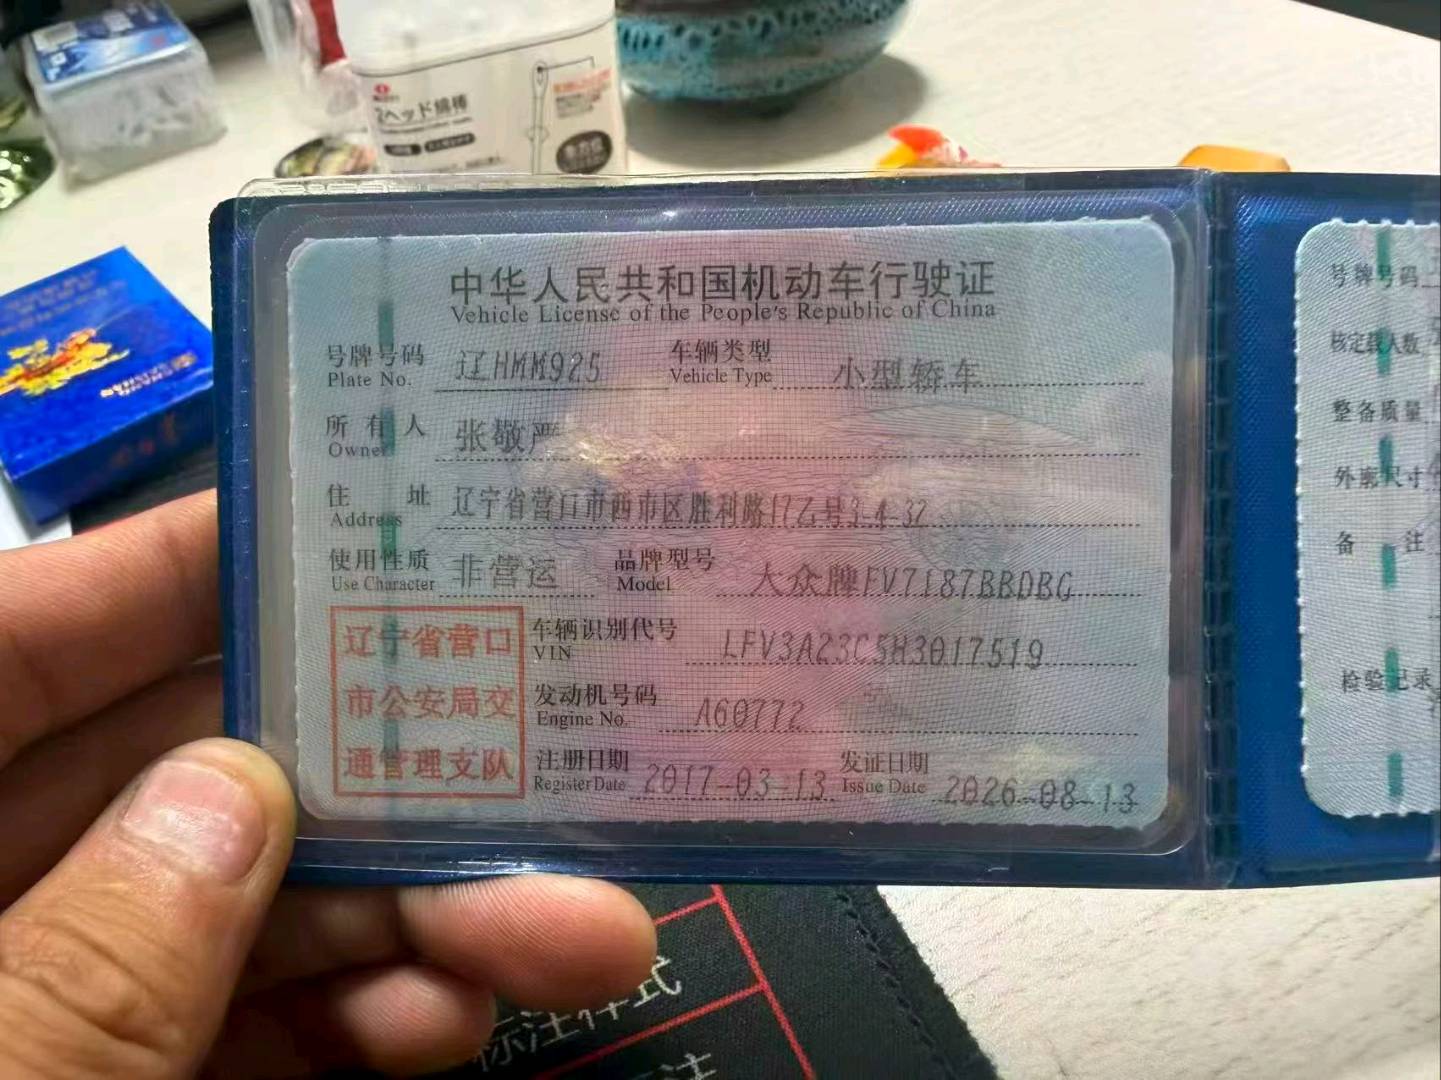 2ヘッド綿棒
中华人民共和国机动车行驶证
Vehicle License of the People's Republic of China
号牌号码 辽HMM925 车辆类型 小型轿车
Plate No. Vehicle Type
所有人 张敬严
Owner
住址 辽宁省营口市西市区胜利路17乙号3-4-32
Address
使用性质 非营运 品牌型号 大众牌FV7187BBDBG
Use Character Model
辽宁省营口
市公安局交
通管理支队
车辆识别代号 LFV3A23C5H3017519
VIN
发动机号码 A60772
Engine No.
注册日期 2017-03-13 发证日期 2026-08-13
Register Date Issue Date
号牌号码
核定载人数
整备质量
外廓尺寸
备注
检验记录
标注样式
注